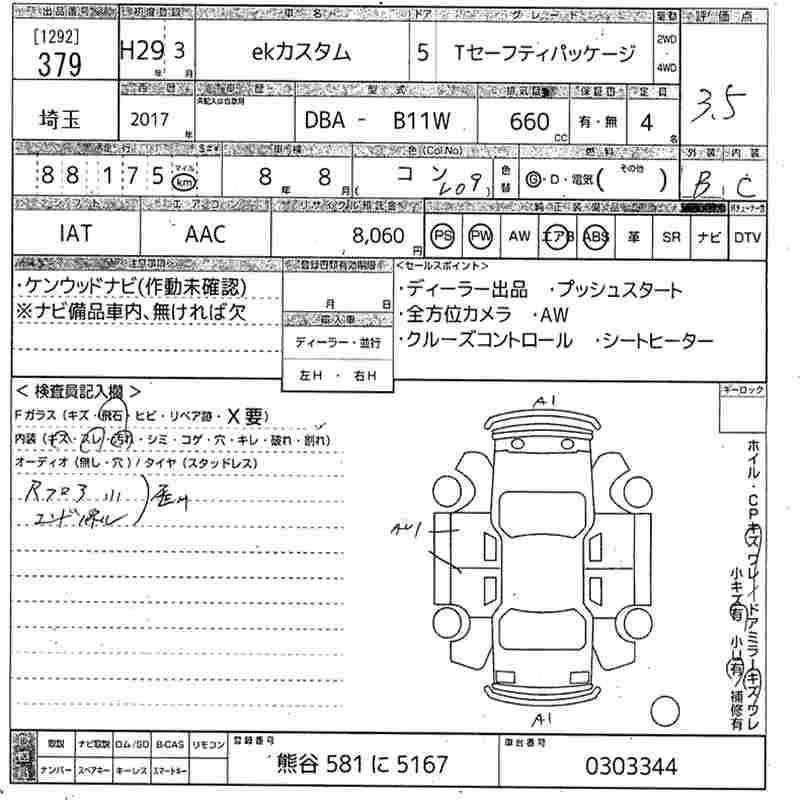 出品番号 初度登録 車名 ドア グレード 駆動 評価点
[1292]
379 H29年 3月 ekカスタム 5 Tセーフティパッケージ 2WD・4WD 3.5
西暦 車歴 型式 排気量 保証書 定員
未記入は自家用
埼玉 2017年 DBA - B11W 660cc 有・無 4名
走行 車検 色(Col No) 燃料 外装 内装
88175 マイル km 8年 8月 コン 色替 G・D・電気( その他 ) B C
シフト エアコン リサイクル預託金 純正装備品
IAT AAC 8,060円 PS PW AW エアB ABS 革 SR ナビ DTV
注意事項 登録書類有効期限 <セールスポイント>
・ケンウッドナビ(作動未確認)
※ナビ備品車内、無ければ欠
月 日
輸入車
ディーラー・並行
左H・右H
・ディーラー出品 ・プッシュスタート
・全方位カメラ ・AW
・クルーズコントロール ・シートヒーター
キーロック
< 検査員記入欄 >
Fガラス(キズ・飛石・ヒビ・リペア跡・X要)
内装(キズ・スレ・汚れ・シミ・コゲ・穴・キレ・破れ・割れ)
オーディオ(無し・穴)/タイヤ(スタッドレス)
A1
AU1
A1
ホイル・CPキズワレ/ドアミラーキズワレ
小キズ有 小U有/補修有
取説 ナビ取説 ロム/SD B-CAS リモコン 登録番号 車台番号
ナンバー スペアキー キーレス スマートキー 熊谷 581 に 5167 0303344